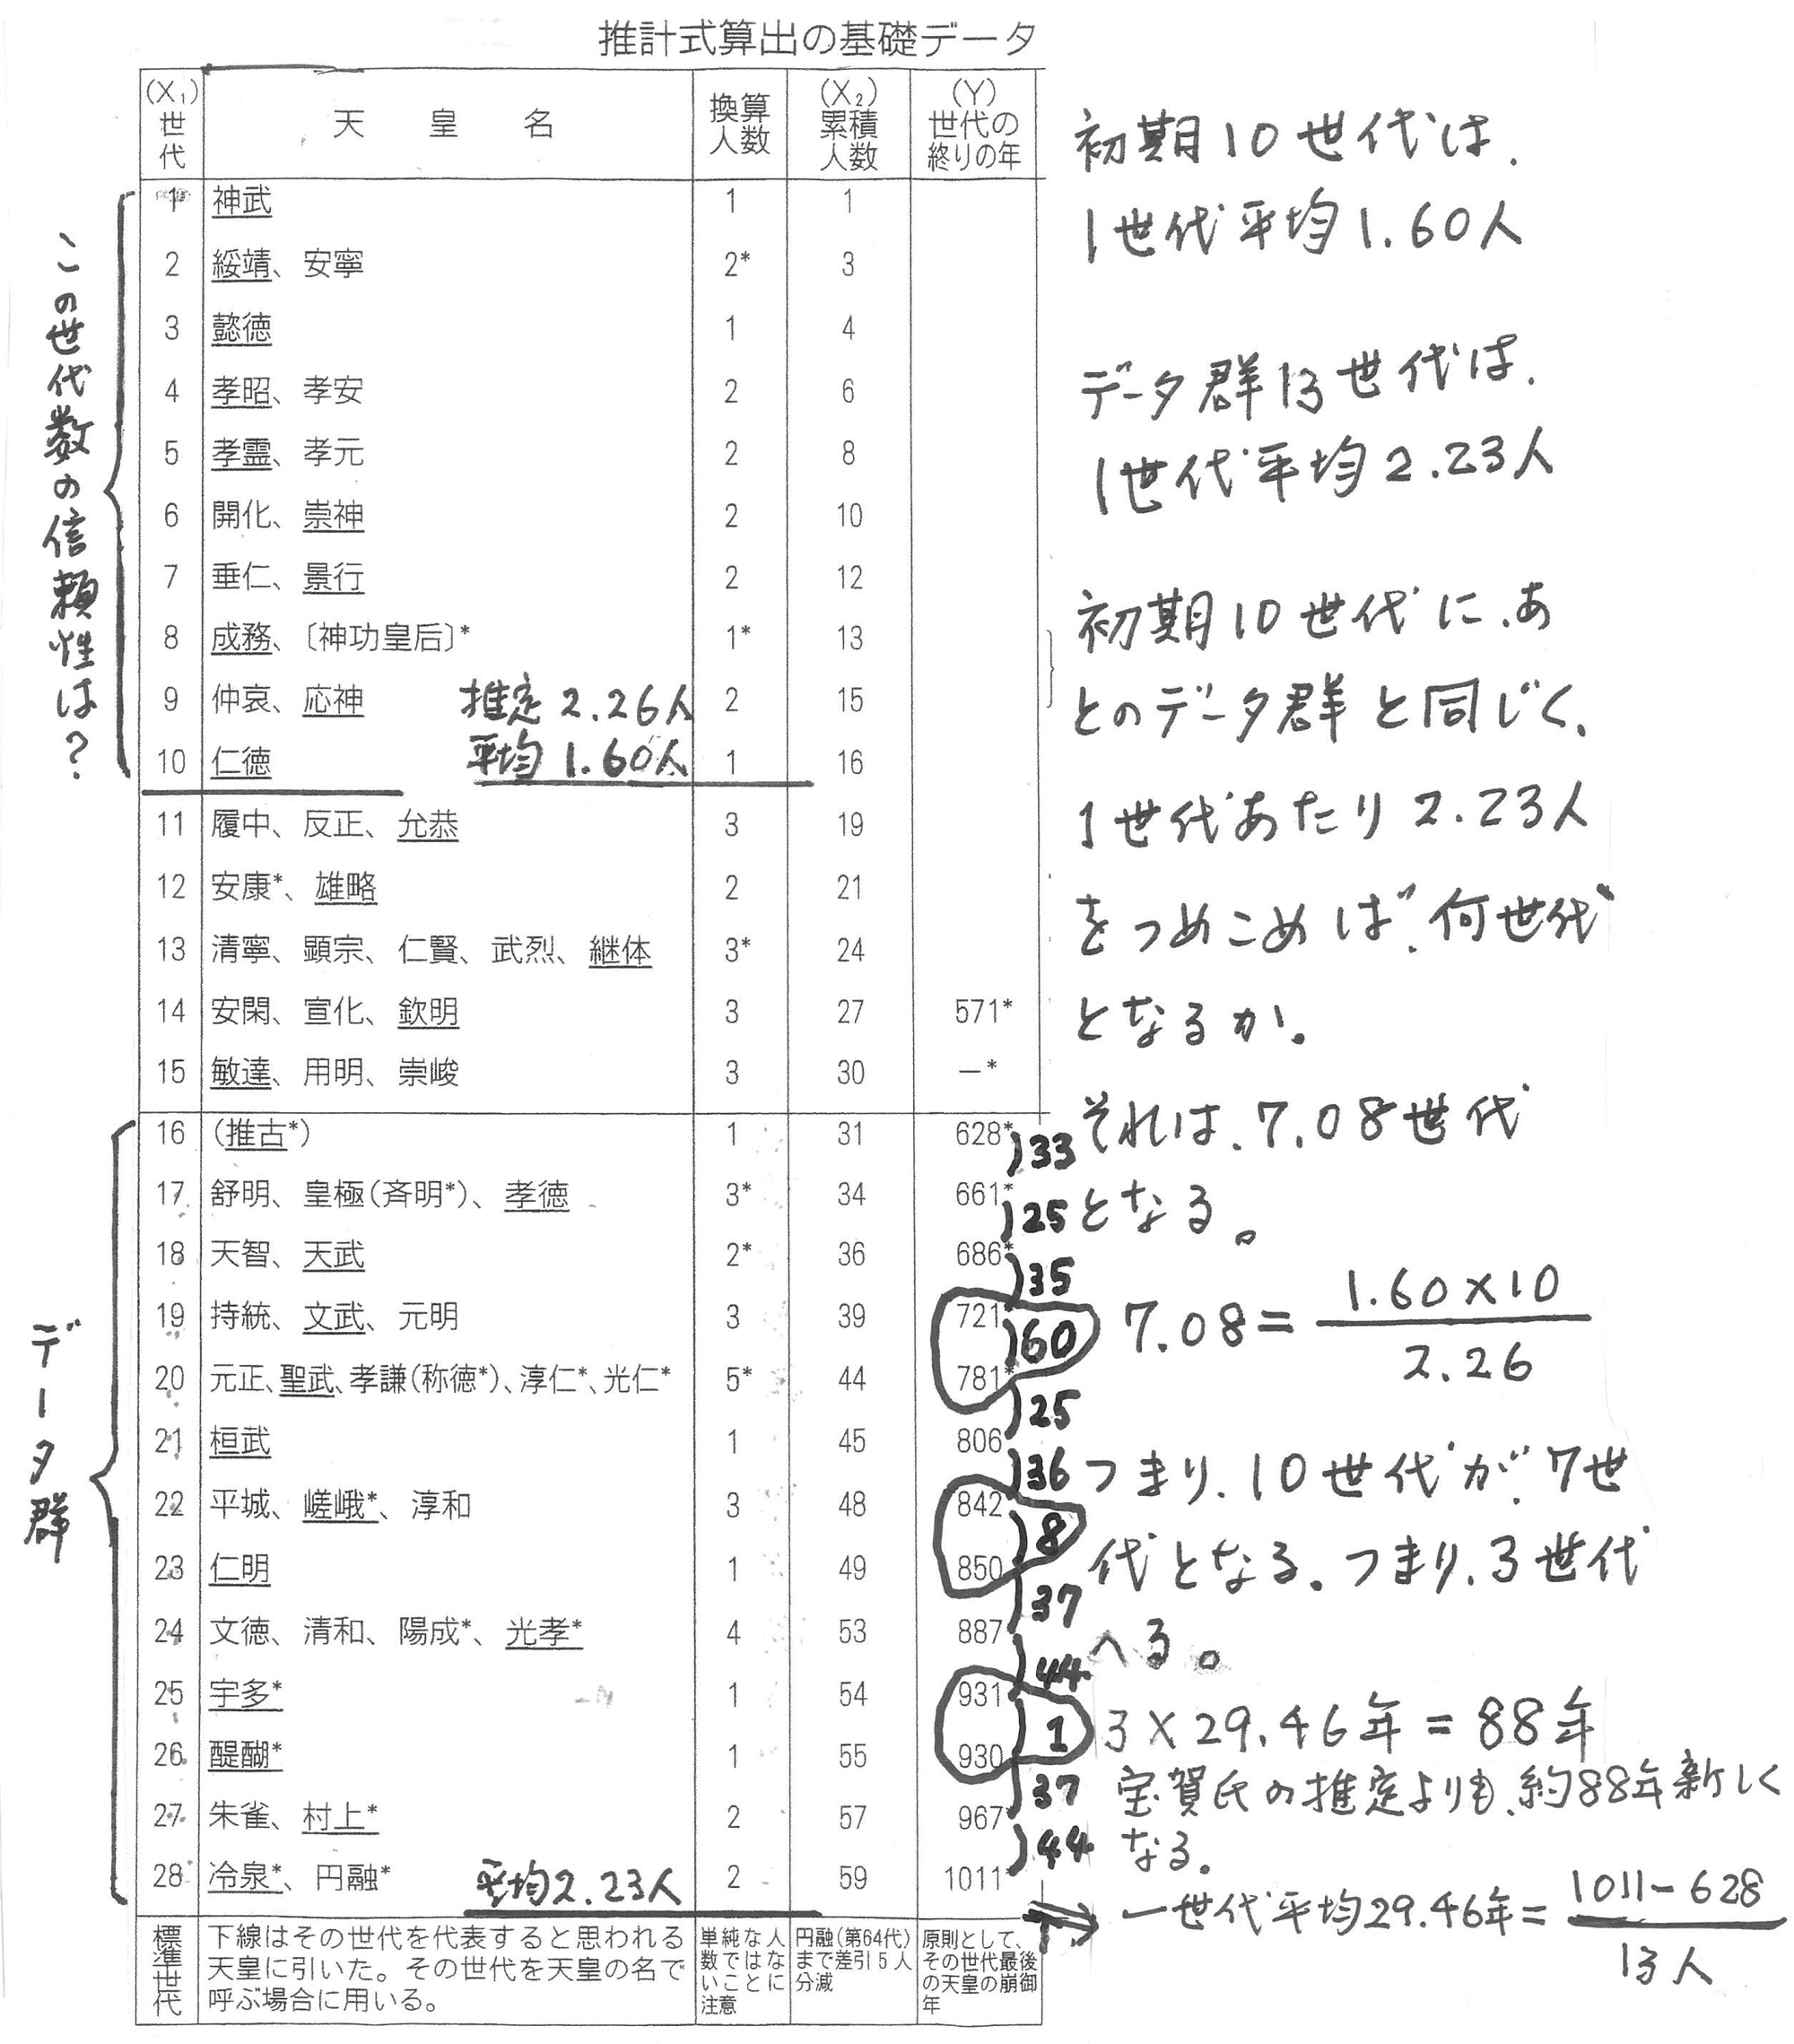 推計式算出の基礎データ
(X₁)世代 天皇名 換算人数 (X₂)累積人数 (Y)世代の終りの年
1 神武 1 1
2 綏靖、安寧 2* 3
3 懿徳 1 4
4 孝昭、孝安 2 6
5 孝霊、孝元 2 8
6 開化、崇神 2 10
7 垂仁、景行 2 12
8 成務、〔神功皇后〕* 1* 13
9 仲哀、応神 推定2.26人 2 15
10 仁徳 平均1.60人 1 16
11 履中、反正、允恭 3 19
12 安康*、雄略 2 21
13 清寧、顕宗、仁賢、武烈、継体 3* 24
14 安閑、宣化、欽明 3 27 571*
15 敏達、用明、崇峻 3 30 ―*
16 (推古*) 1 31 628*
33
17 舒明、皇極(斉明*)、孝徳 3* 34 661*
25
18 天智、天武 2* 36 686*
35
19 持統、文武、元明 3 39 721*
60
20 元正、聖武、孝謙(称徳*)、淳仁*、光仁* 5* 44 781*
25
21 桓武 1 45 806
36
22 平城、嵯峨*、淳和 3 48 842
8
23 仁明 1 49 850
37
24 文徳、清和、陽成*、光孝* 4 53 887
44
25 宇多* 1 54 931
1
26 醍醐* 1 55 930
37
27 朱雀、村上* 2 57 967
44
28 冷泉*、円融* 平均2.23人 2 59 1011*
標準世代
下線はその世代を代表すると思われる
天皇に引いた。その世代を天皇の名で
呼ぶ場合に用いる。
単純な人
数ではな
いことに
注意
円融(第64代)
まで差引5人
分減
原則として、
その世代最後
の天皇の崩御
年
この世代数の信頼性は?
データ群
初期10世代は、
1世代平均1.60人
データ群13世代は、
1世代平均2.23人
初期10世代に、あ
とのデータ群と同じく、
1世代あたり2.23人
をつめこめば、何世代
となるか。
それは、7.08世代
となる。
7.08=1.60×10
2.26
つまり、10世代が、7世
代となる。つまり、3世代
へる。
3×29.46年=88年
宝賀氏の推定よりも、約88年新しく
なる。
一世代平均29.46年=1011-628
13人